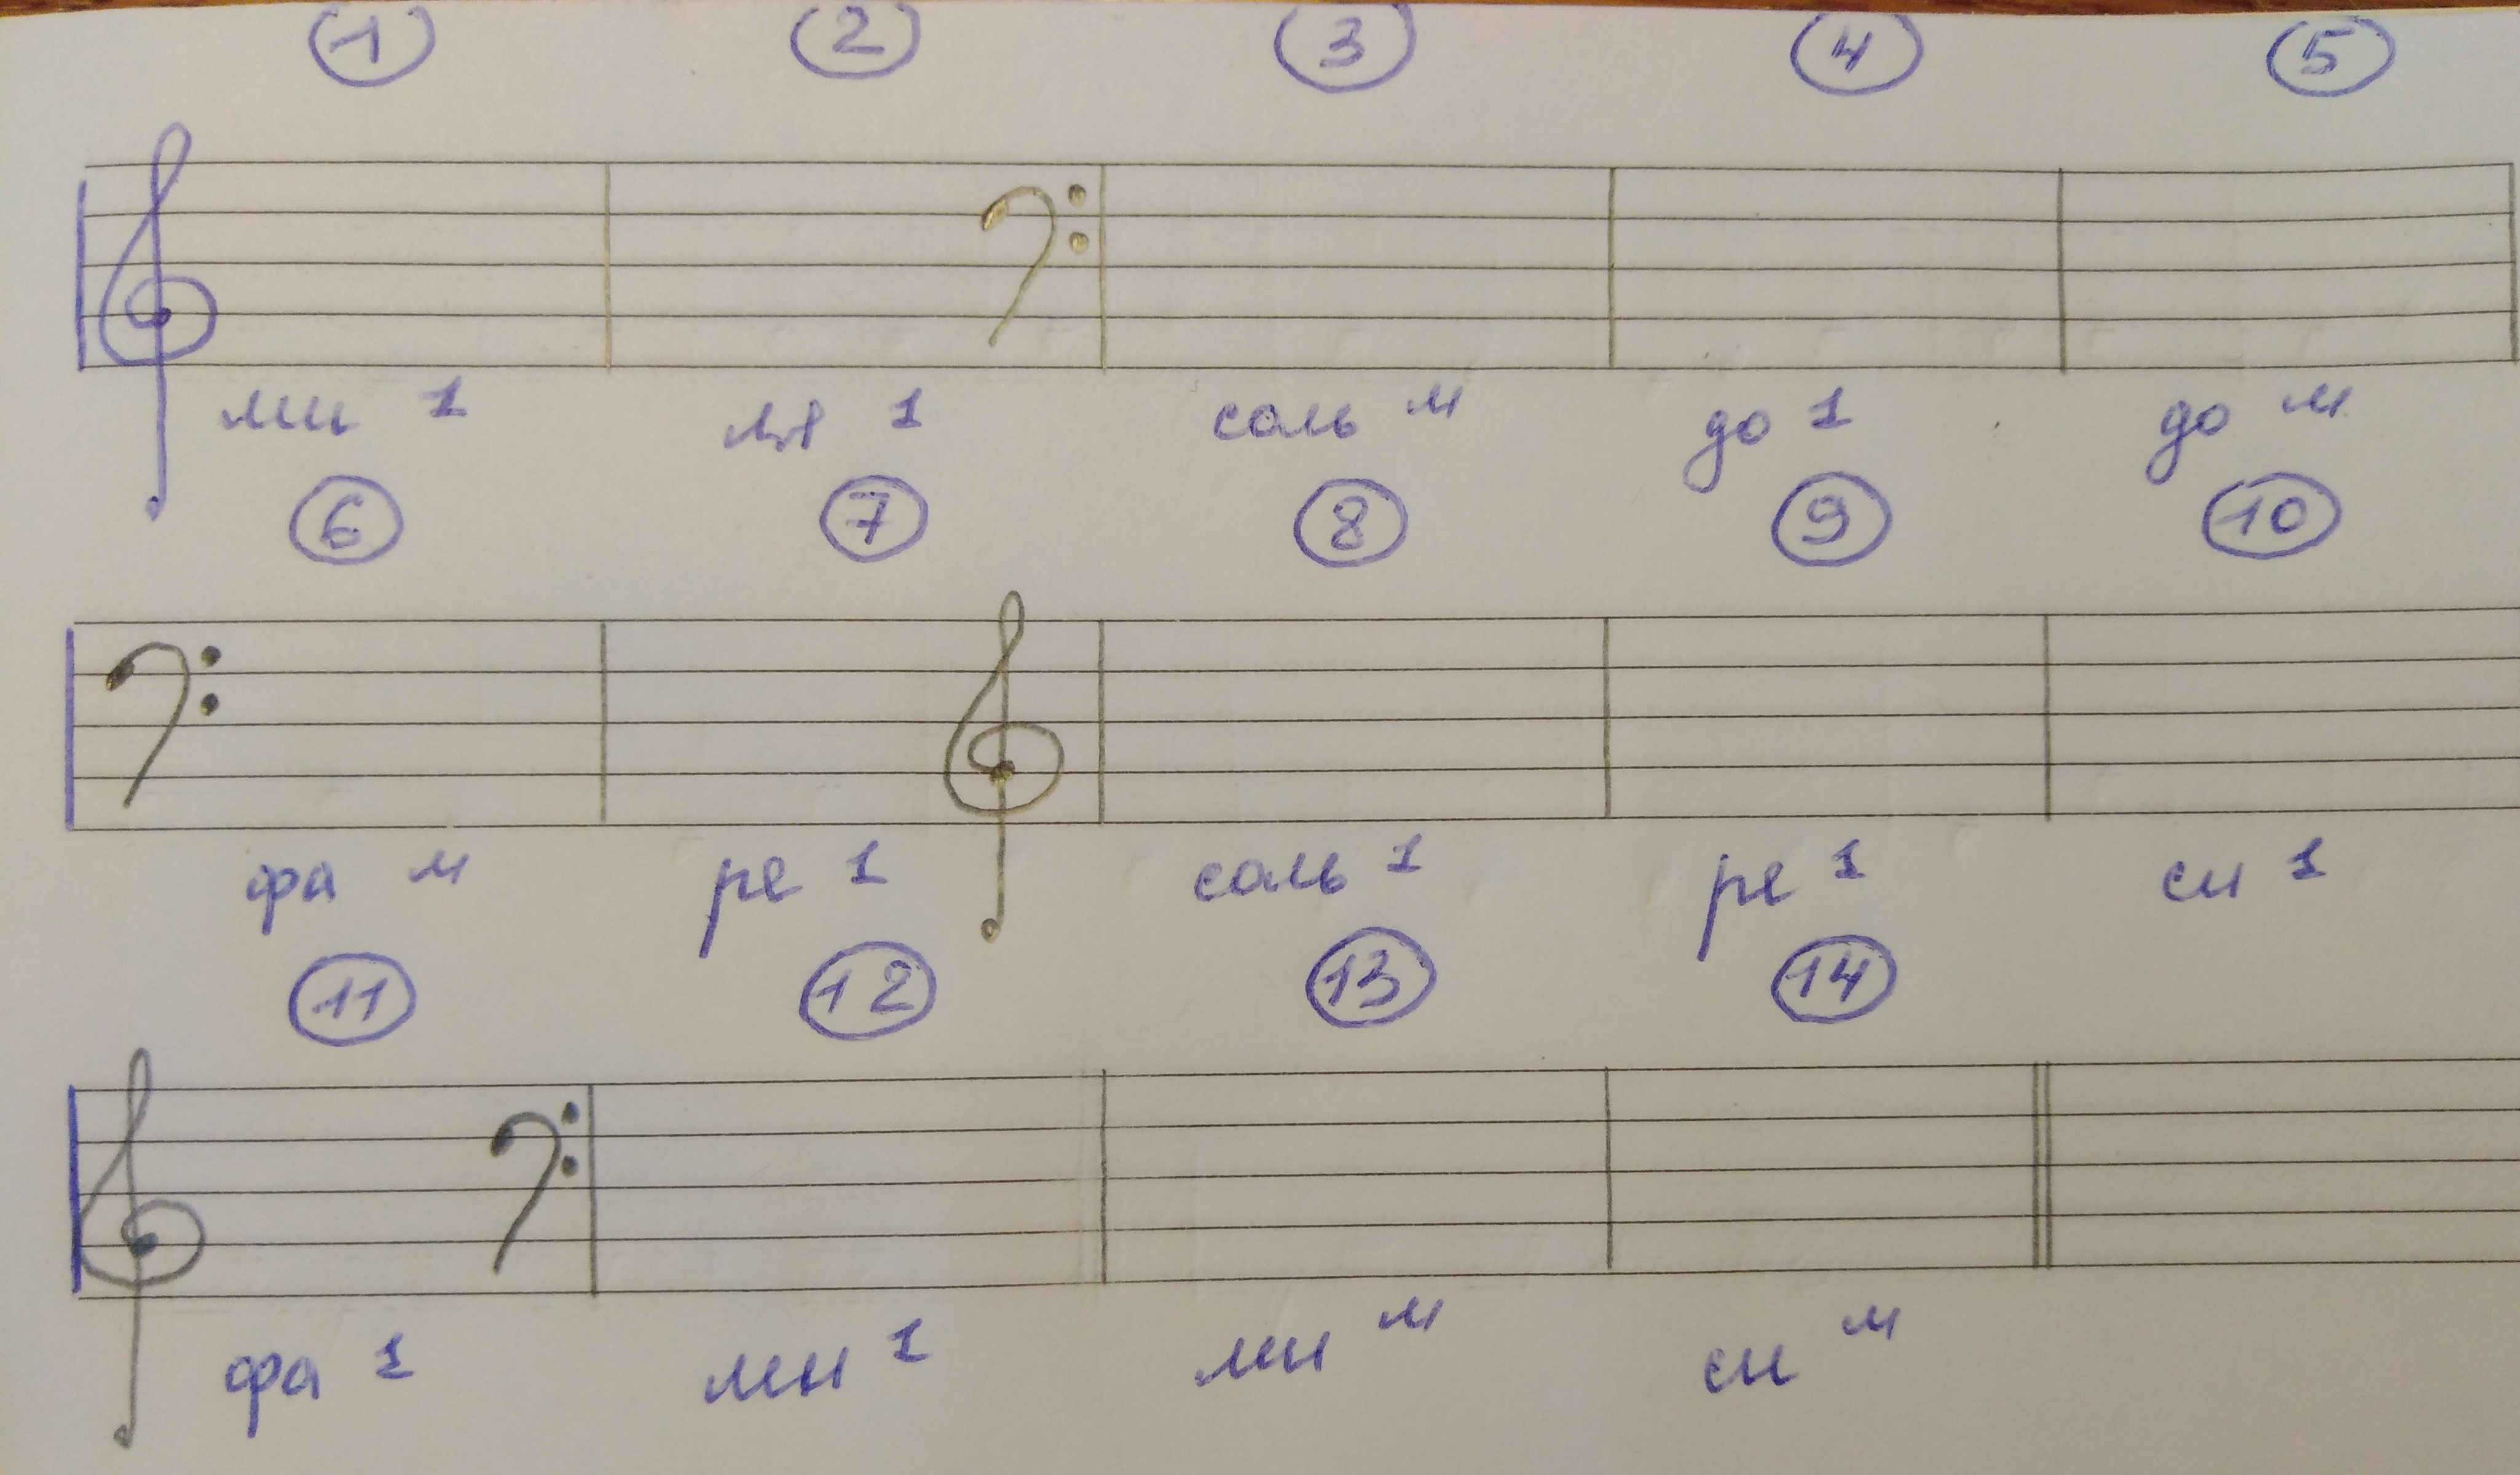 1 2 3 4 5
ми 1 ля 1 соль м до 1 до м
6 7 8 9 10
фа м ре 1 соль 1 ре 1 си 1
11 12 13 14
фа 1 ми 1 ми м си м